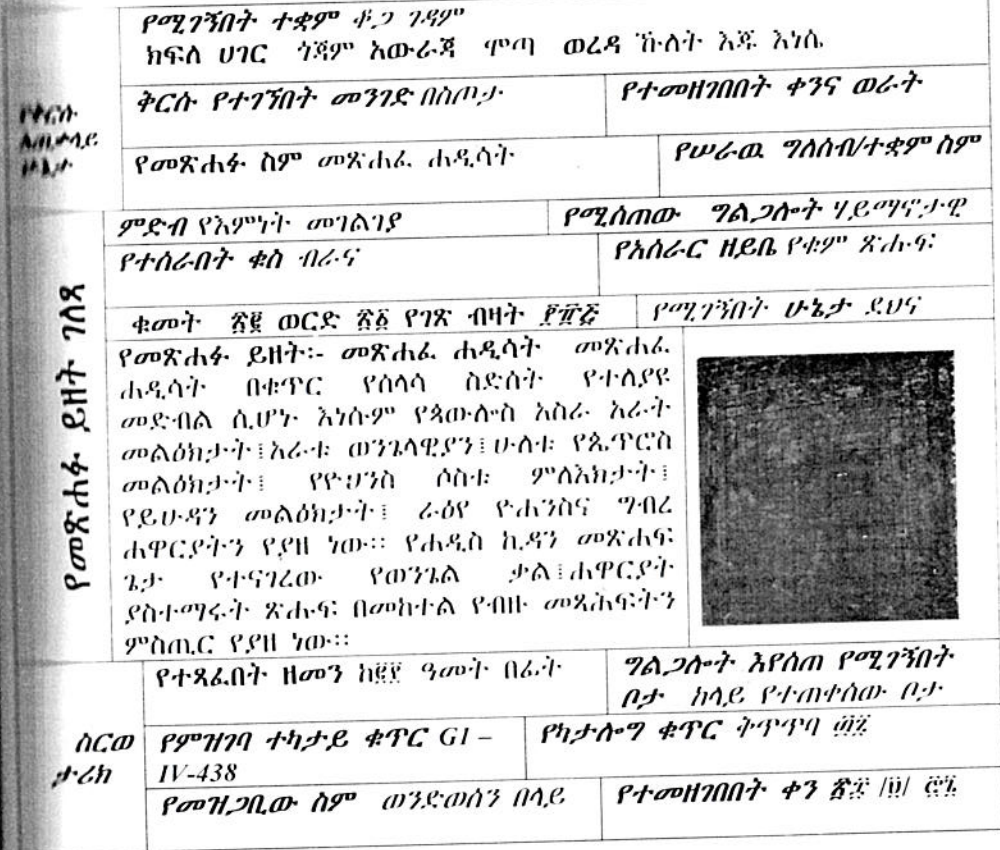 የሚገኝበት ተቋም ቆጋ ገዳም
ክፍለ ሀገር ጎጃም አውራጃ ሞጣ ወረዳ ኹለት እጁ እነሴ
የቅርሱ
አጠቃላይ
ሁኔታ
ቅርሱ የተገኘበት መንገድ በስጦታ
የተመዘገበበት ቀንና ወራት
የመጽሐፉ ስም መጽሐፈ ሐዲሳት
የሠራዉ ግለሰብ/ተቋም ስም
የመጽሐፉ ይዘት ገለጻ
ምድብ የእምነት መገልገያ
የሚሰጠው ግልጋሎት ሃይማኖታዊ
የተሰራበት ቁስ ብራና
የአሰራር ዘይቤ የቁም ጽሑፍ
ቁመት ወርድ የገጽ ብዛት
የሚገኝበት ሁኔታ ደህና
የመጽሐፉ ይዘት፡- መጽሐፈ ሐዲሳት መጽሐፈ
ሐዲሳት በቁጥር የሰላሳ ስድስት የተለያዩ
መድብል ሲሆኑ እነሱም የጳውሎስ አስራ አራት
መልዕክታት፤አራቱ ወንጌላዊያን፤ሁለቱ የጴጥሮስ
መልዕክታት፤ የዮሀንስ ሶስቱ ምለእክታት፤
የይሁዳን መልዕክታት፤ ራዕየ ዮሐንስና ግብረ
ሐዋርያትን የያዘ ነው። የሐዲስ ኪዳን መጽሐፍ
ጌታ የተናገረው የወንጌል ቃል፤ሐዋርያት
ያስተማሩት ጽሑፍ በመከተል የብዙ መጻሕፍትን
ምስጢር የያዘ ነው።
ስርወ
ታሪክ
የተጻፈበት ዘመን ዓመት በፊት
ግልጋሎት እየሰጠ የሚገኝበት
ቦታ ከላይ የተጠቀሰው ቦታ
የምዝገባ ተካታይ ቁጥር G1 –
IV-438
የካታሎግ ቁጥር ትጥጥባ
የመዝጋቢው ስም ወንድወሰን በላይ
የተመዘገበበት ቀን